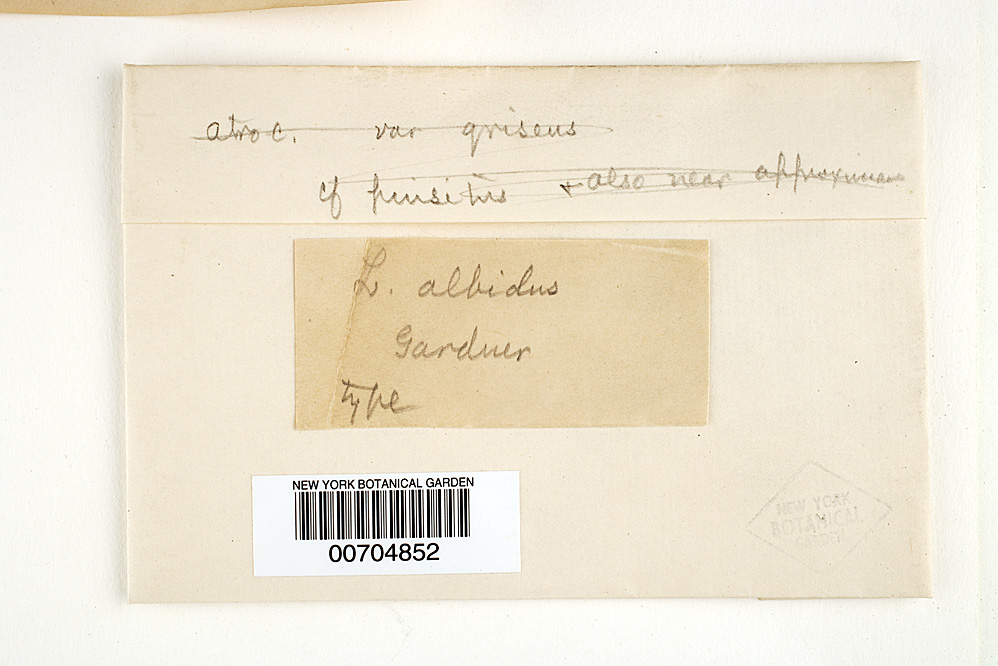 atroc. var griseus
cf pinsitus + also near approximans
L. albidus
Gardner
type
NEW YORK BOTANICAL GARDEN
00704852
NEW YORK
BOTANICAL
GARDEN